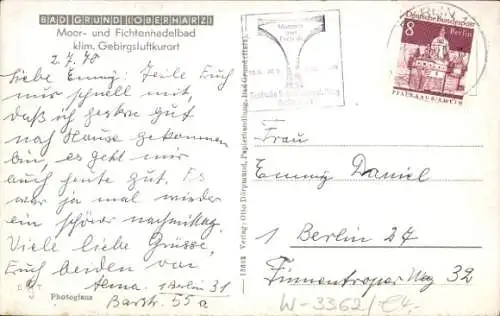 BAD GRUND (OBERHARZ)
Moor- und Fichtennadelbad
klim. Gebirgsluftkurort
2.7.
Liebe Emmy: Teile Euch
nur schnell mit,
daß ich gestern gut
nach Hause gekommen
bin, es geht mir
auch heute gut. Es
war ja mal wieder
ein schöner nachmittag.
Viele liebe Grüsse,
Euch beiden von
1 Berlin 31
Barstr. 55a
Photoglanz
Verlag: Otto Dörpmund, Papierhandlung, Bad Grund (Harz)
BERLIN
Deutsche Bundespost
8 Berlin
PFALZ KAUB/RHEIN
Frau
Emmy Daniel
1 Berlin 27
Weg 32
W-3362/ €4,-